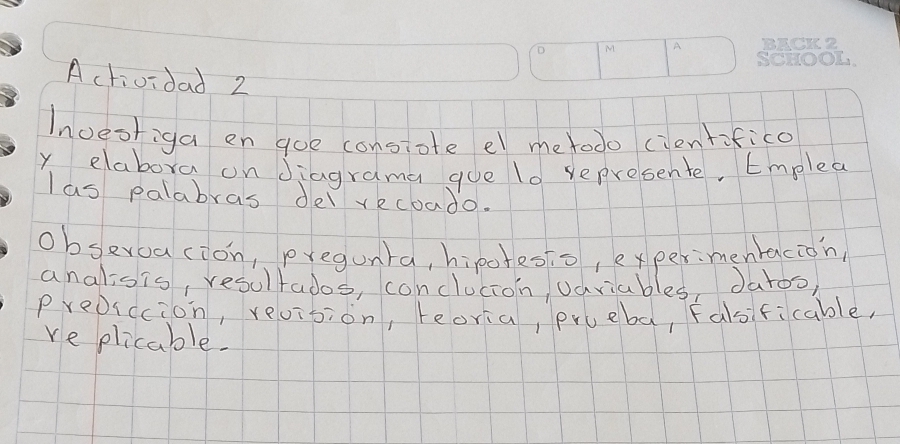 D M A
BACK 2
SCHOOL.
Actividad 2
Investiga en que consiste el metodo cientifico
y elabora un diagrama que lo represente. Emplea
las palabras del recuado.
Observación, pregunta, hipotesis, experimentación,
analisis, resultados, conclución, variables, datos,
predicción, revisión, teoria, prueba, falsificable,
replicable.